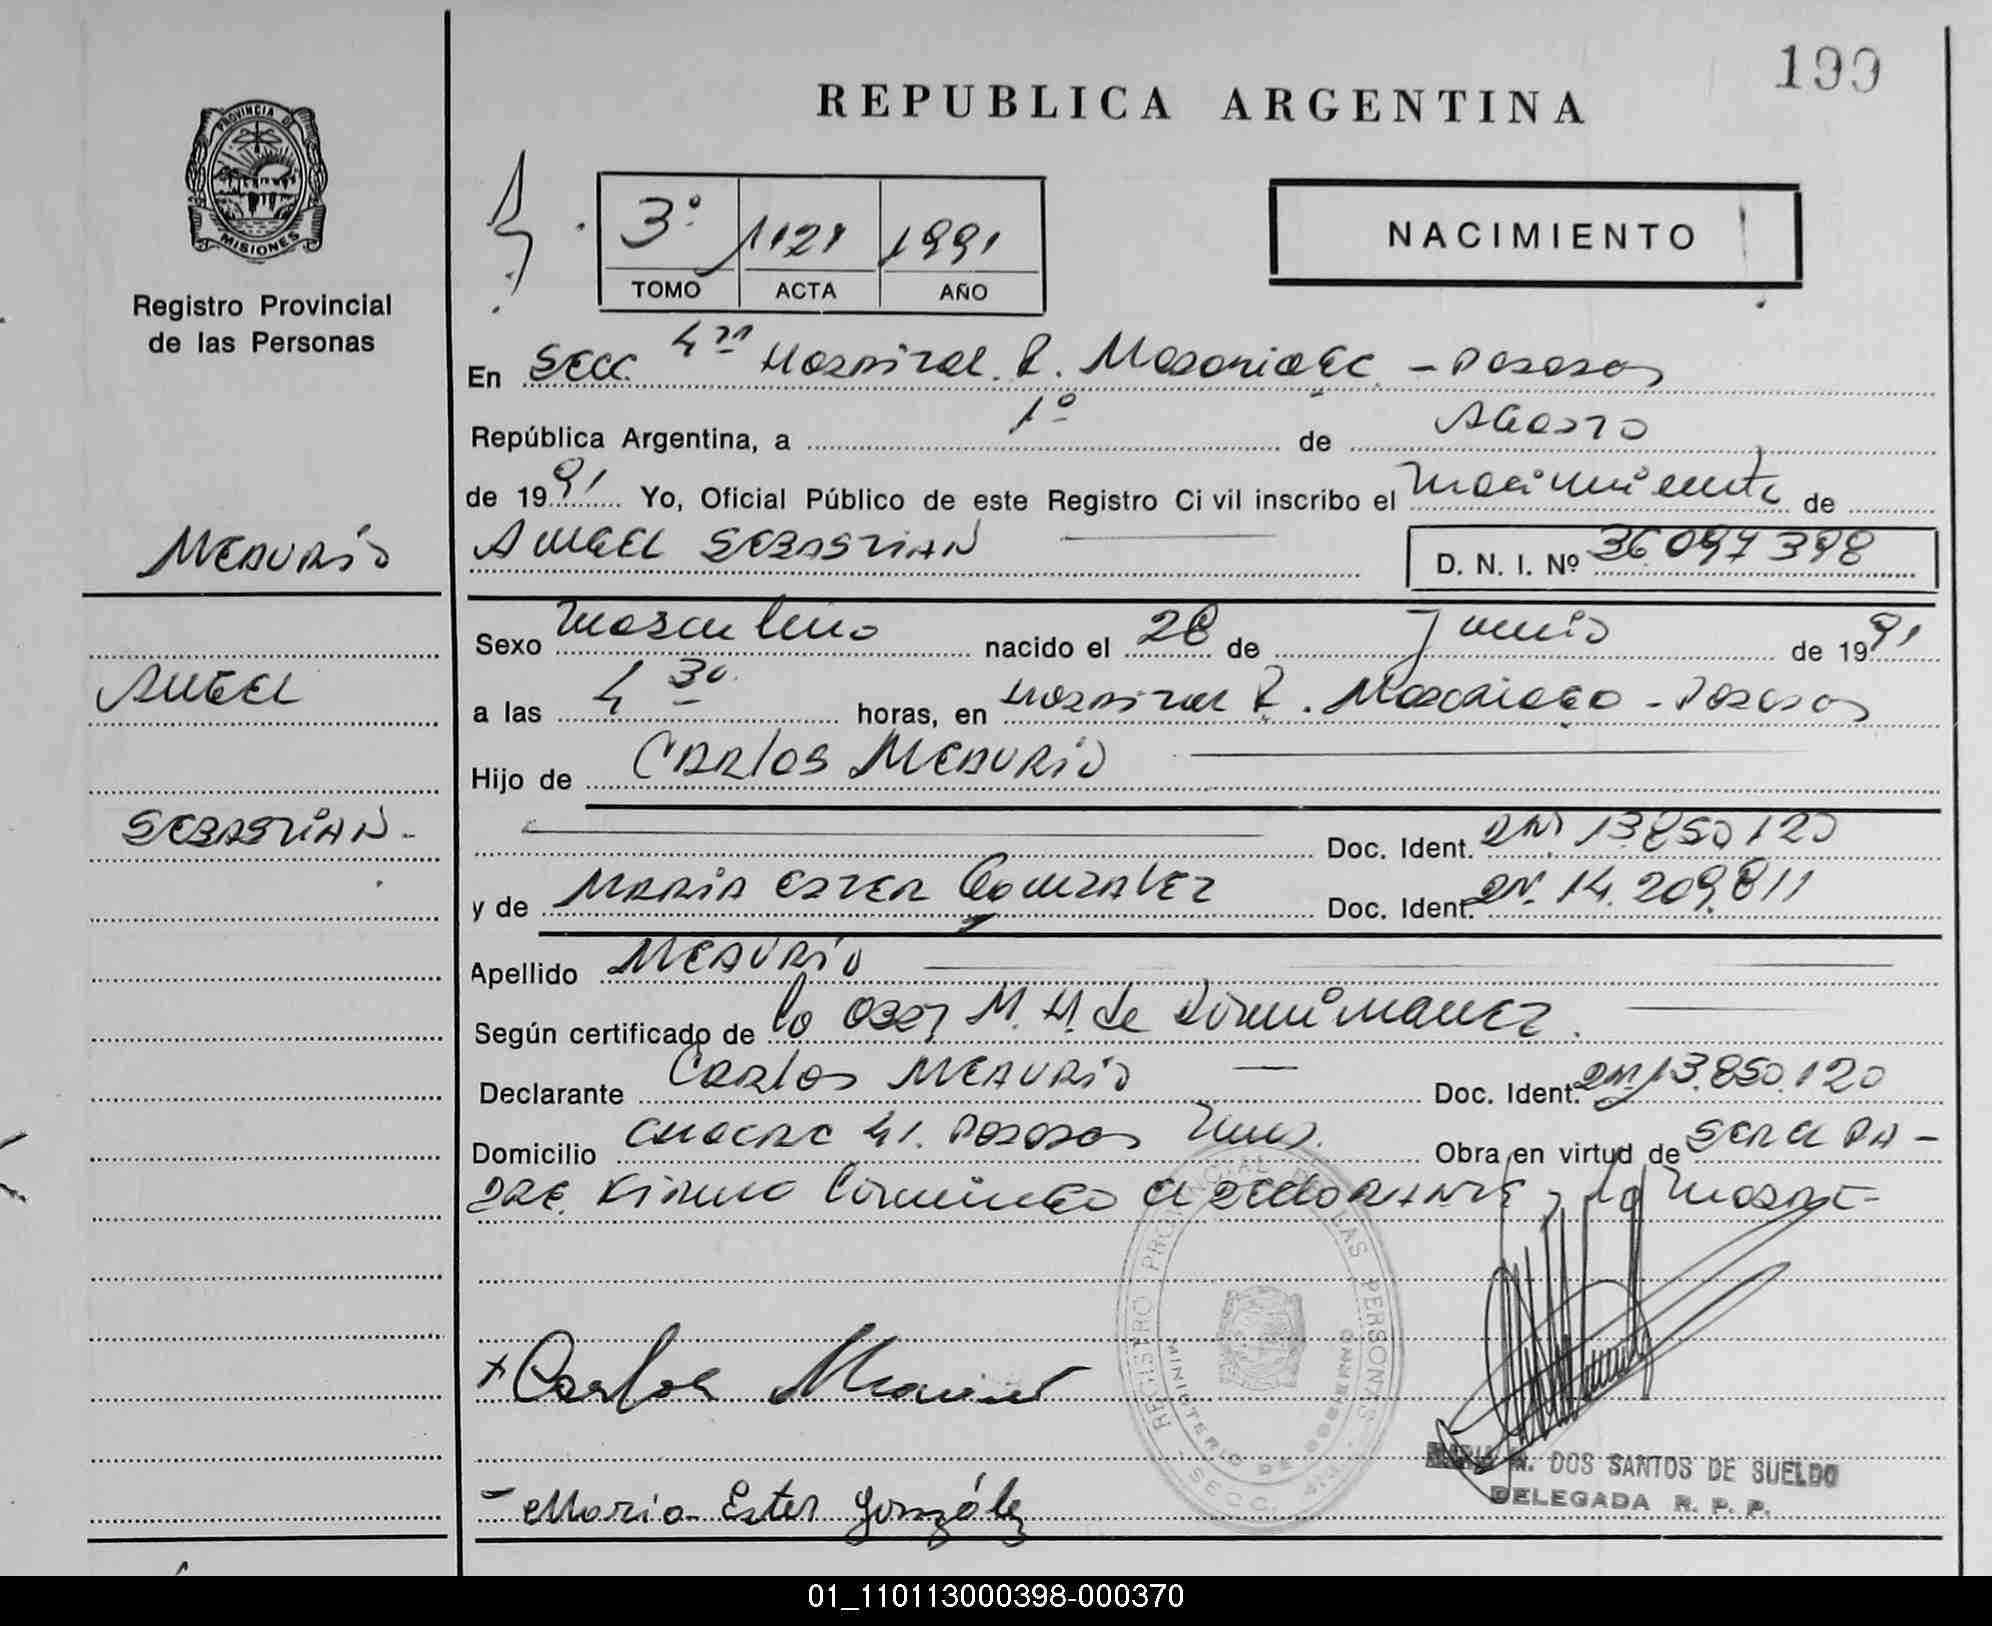 199
REPUBLICA ARGENTINA
PROVINCIA DE
MISIONES
Registro Provincial
de las Personas
3º 1121 1991
TOMO ACTA AÑO
NACIMIENTO
En SECC. 4ta Hospital R. Madariaga - Posadas
República Argentina, a 1º de Agosto
de 1991 Yo, Oficial Público de este Registro Civil inscribo el nacimiento de
ANGEL SEBASTIAN D. N. I. Nº 36 097 398
MEAURIO
ANGEL
SEBASTIAN-
Sexo masculino nacido el 28 de Junio de 1991
a las 4 30 horas, en Hospital R. Madariaga - Posadas
Hijo de CARLOS MEAURIO
Doc. Ident. DNI 13 850 120
y de MARIA ESTER GONZALEZ Doc. Ident. DNI. 14.209.811
Apellido MEAURIO
Según certificado de la Obst M. H. de
Declarante CARLOS MEAURIO Doc. Ident. DNI 13.850.120
Domicilio CHACRA 41. Posadas Mnes. Obra en virtud de SER el PA-
DRE. Firma conmigo el DECLARANTE y la MADRE-
Carlos Meaurio
Maria Ester González
REGISTRO PROVINCIAL DE LAS PERSONAS
MINISTERIO DE GOBIERNO
SECC. 4ta.
MARIA M. DOS SANTOS DE SUELDO
DELEGADA R. P. P.
01_110113000398-000370